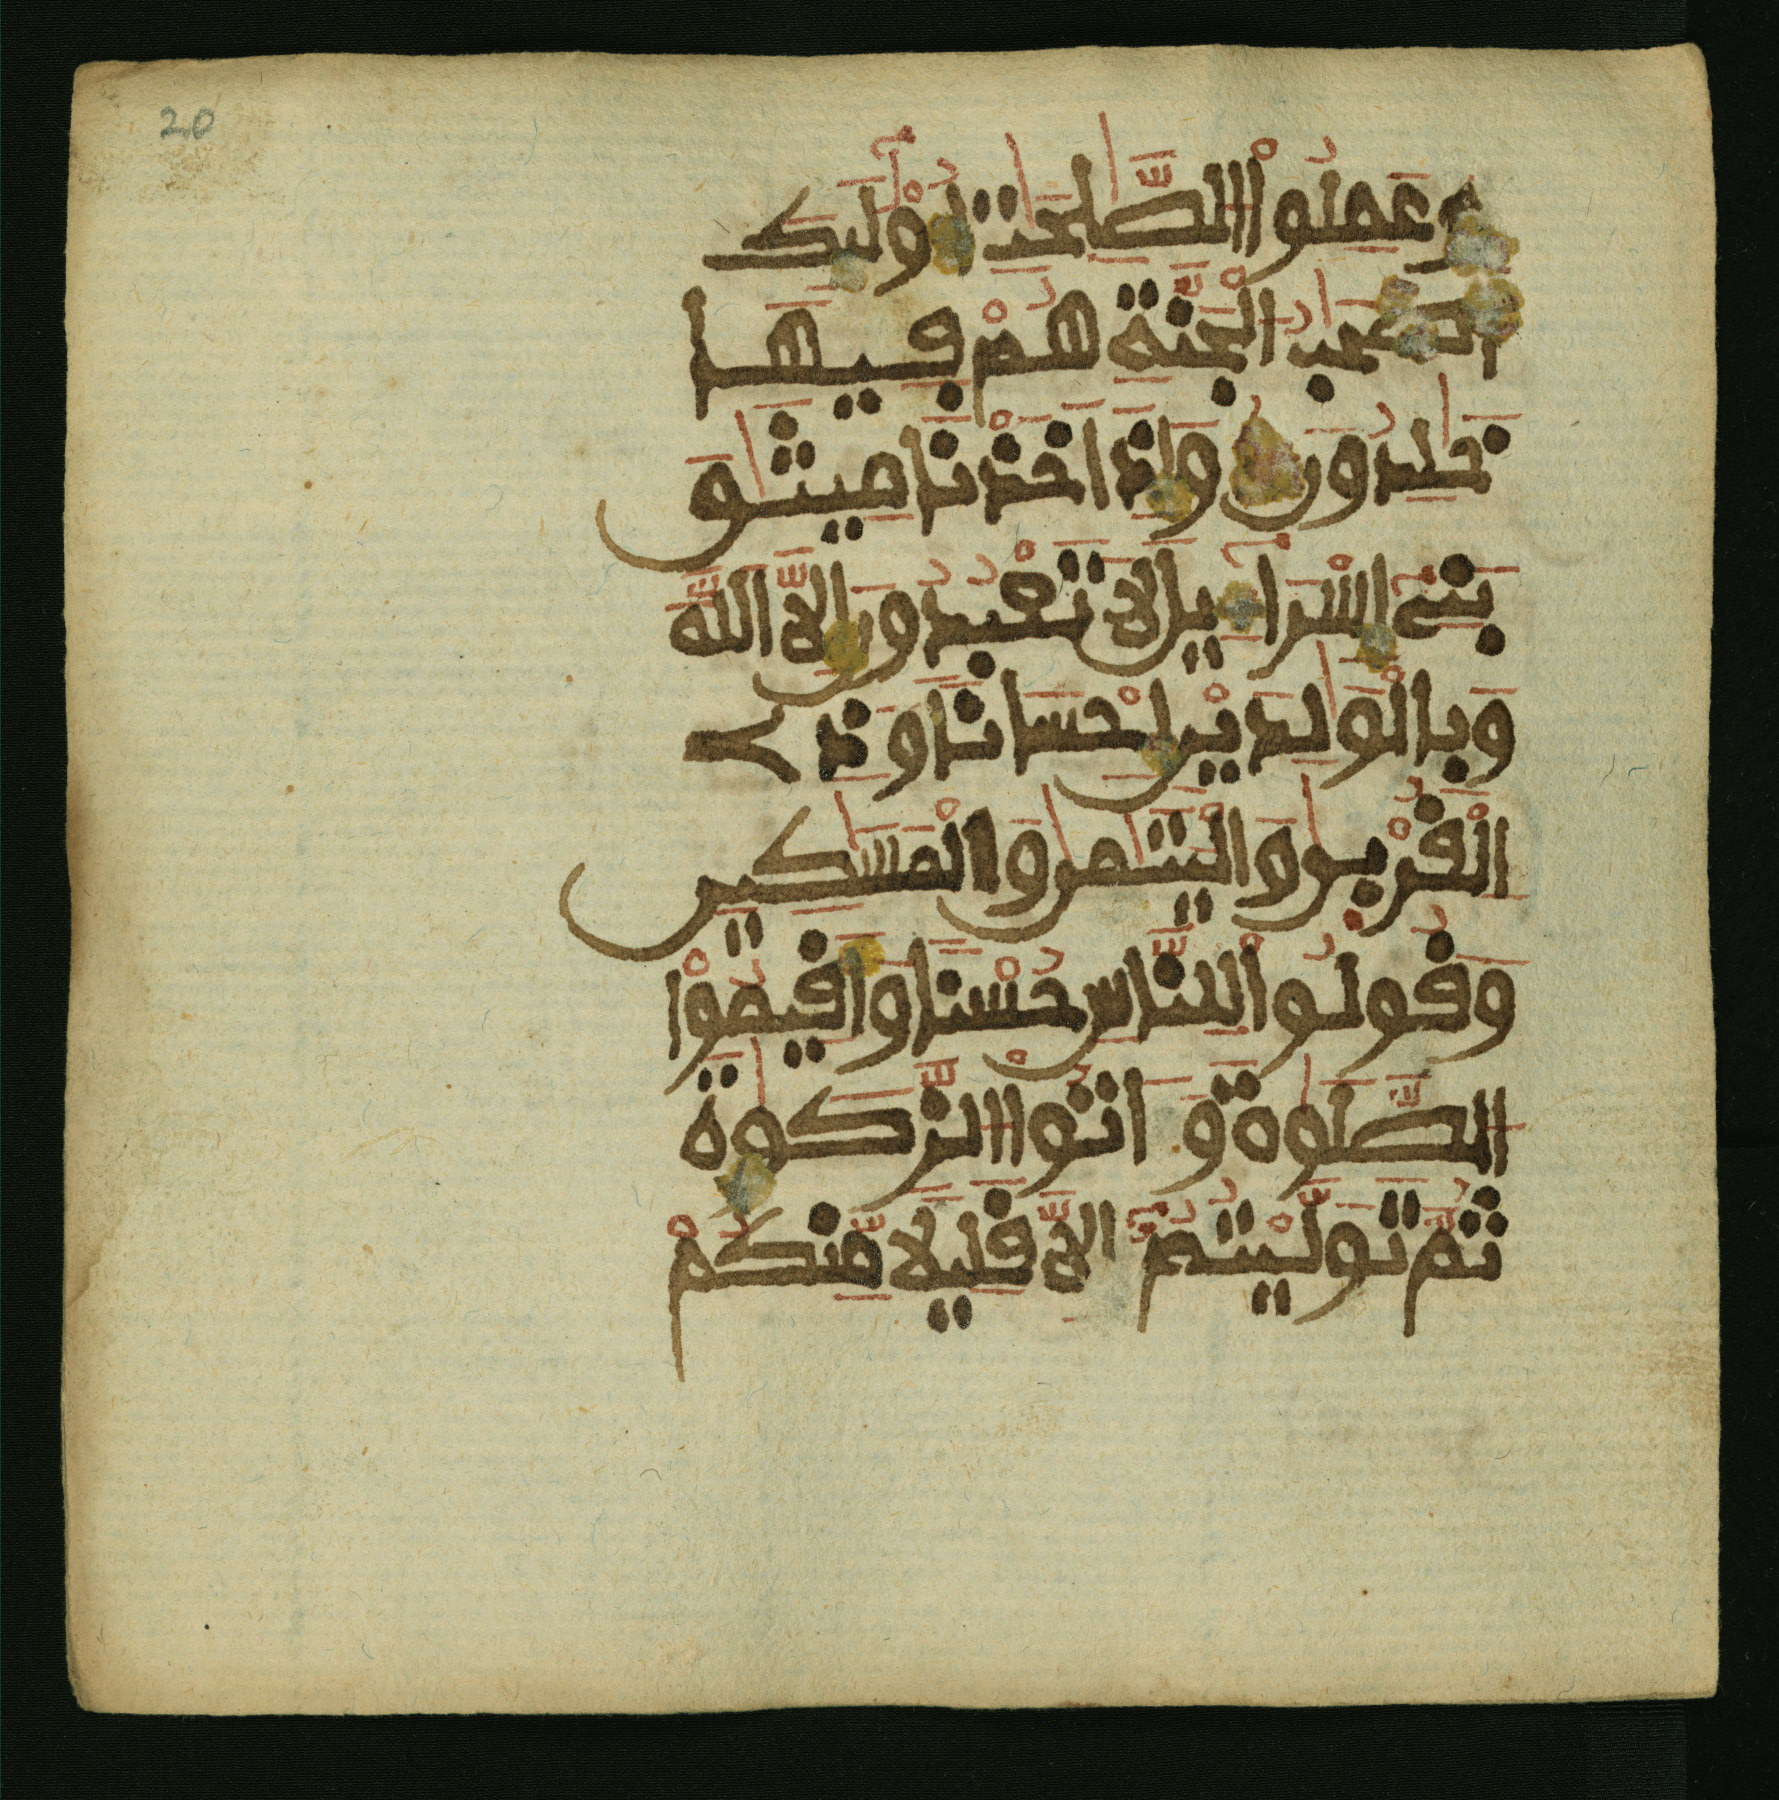 20
وَعَمِلُواْ الصَّلِحَتِ أُوْلَٓئِكَ
أَصْحَبُ الْجَنَّةِ هُمْ فِيهَا
خَلِدُونَ وَإِذْ أَخَذْنَا مِيثَقَ
بَنِےٓ إِسْرَآءِيلَ لَا تَعْبُدُونَ إِلَّا اَللَّهَ
وَبِالْوَلِدَيْنِ إِحْسَانًا وَذِے
اِلْقُرْبَى وَالْيَتَمَى وَالْمَسَكِينِ
وَقُولُواْ لِلنَّاسِ حُسْنًا وَأَقِيمُواْ
الصَّلَوةَ وَءَاتُواْ الزَّكَوةَ
ثُمَّ تَوَلَّيْتُمُۥٓ إِلَّا قَلِيلًا مِّنكُمْ